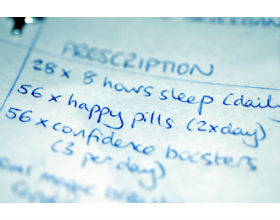 PRESCRIPTION
28 x 8 hours sleep (daily
56 x happy pills (2xday)
56 x confidence boosters
(3 per day)